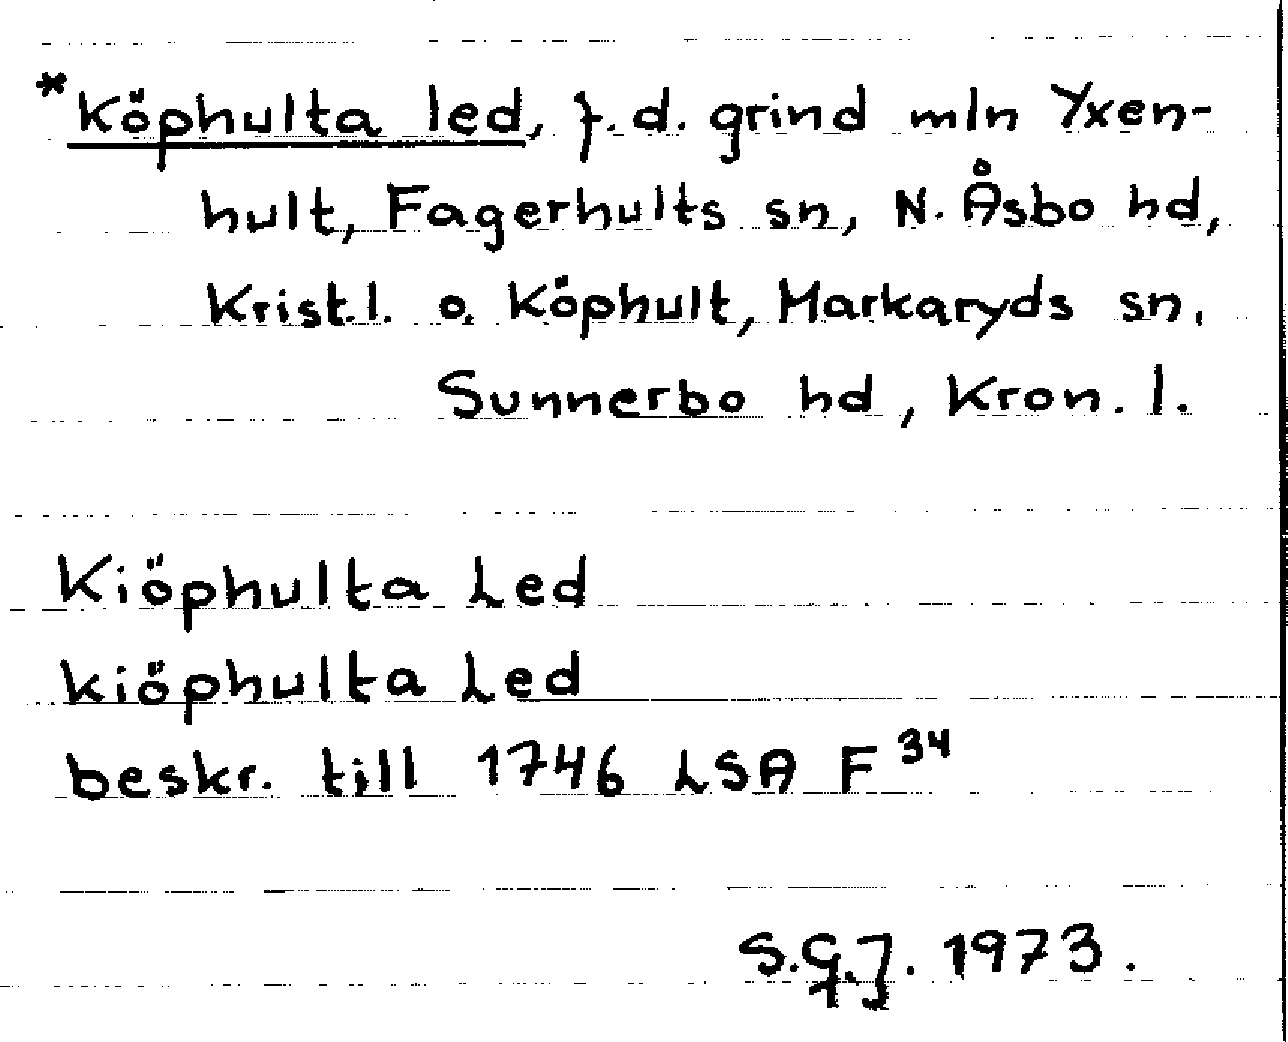 *Köphulta led, f.d. grind mln Yxen-
hult, Fagerhults sn, N. Åsbo hd,
Krist.l. o. Köphult, Markaryds sn,
Sunnerbo hd, Kron. l.
Kiöphulta Led
kiöphulta Led
beskr. till 1746 LSA F³⁴
S.G.J. 1973.